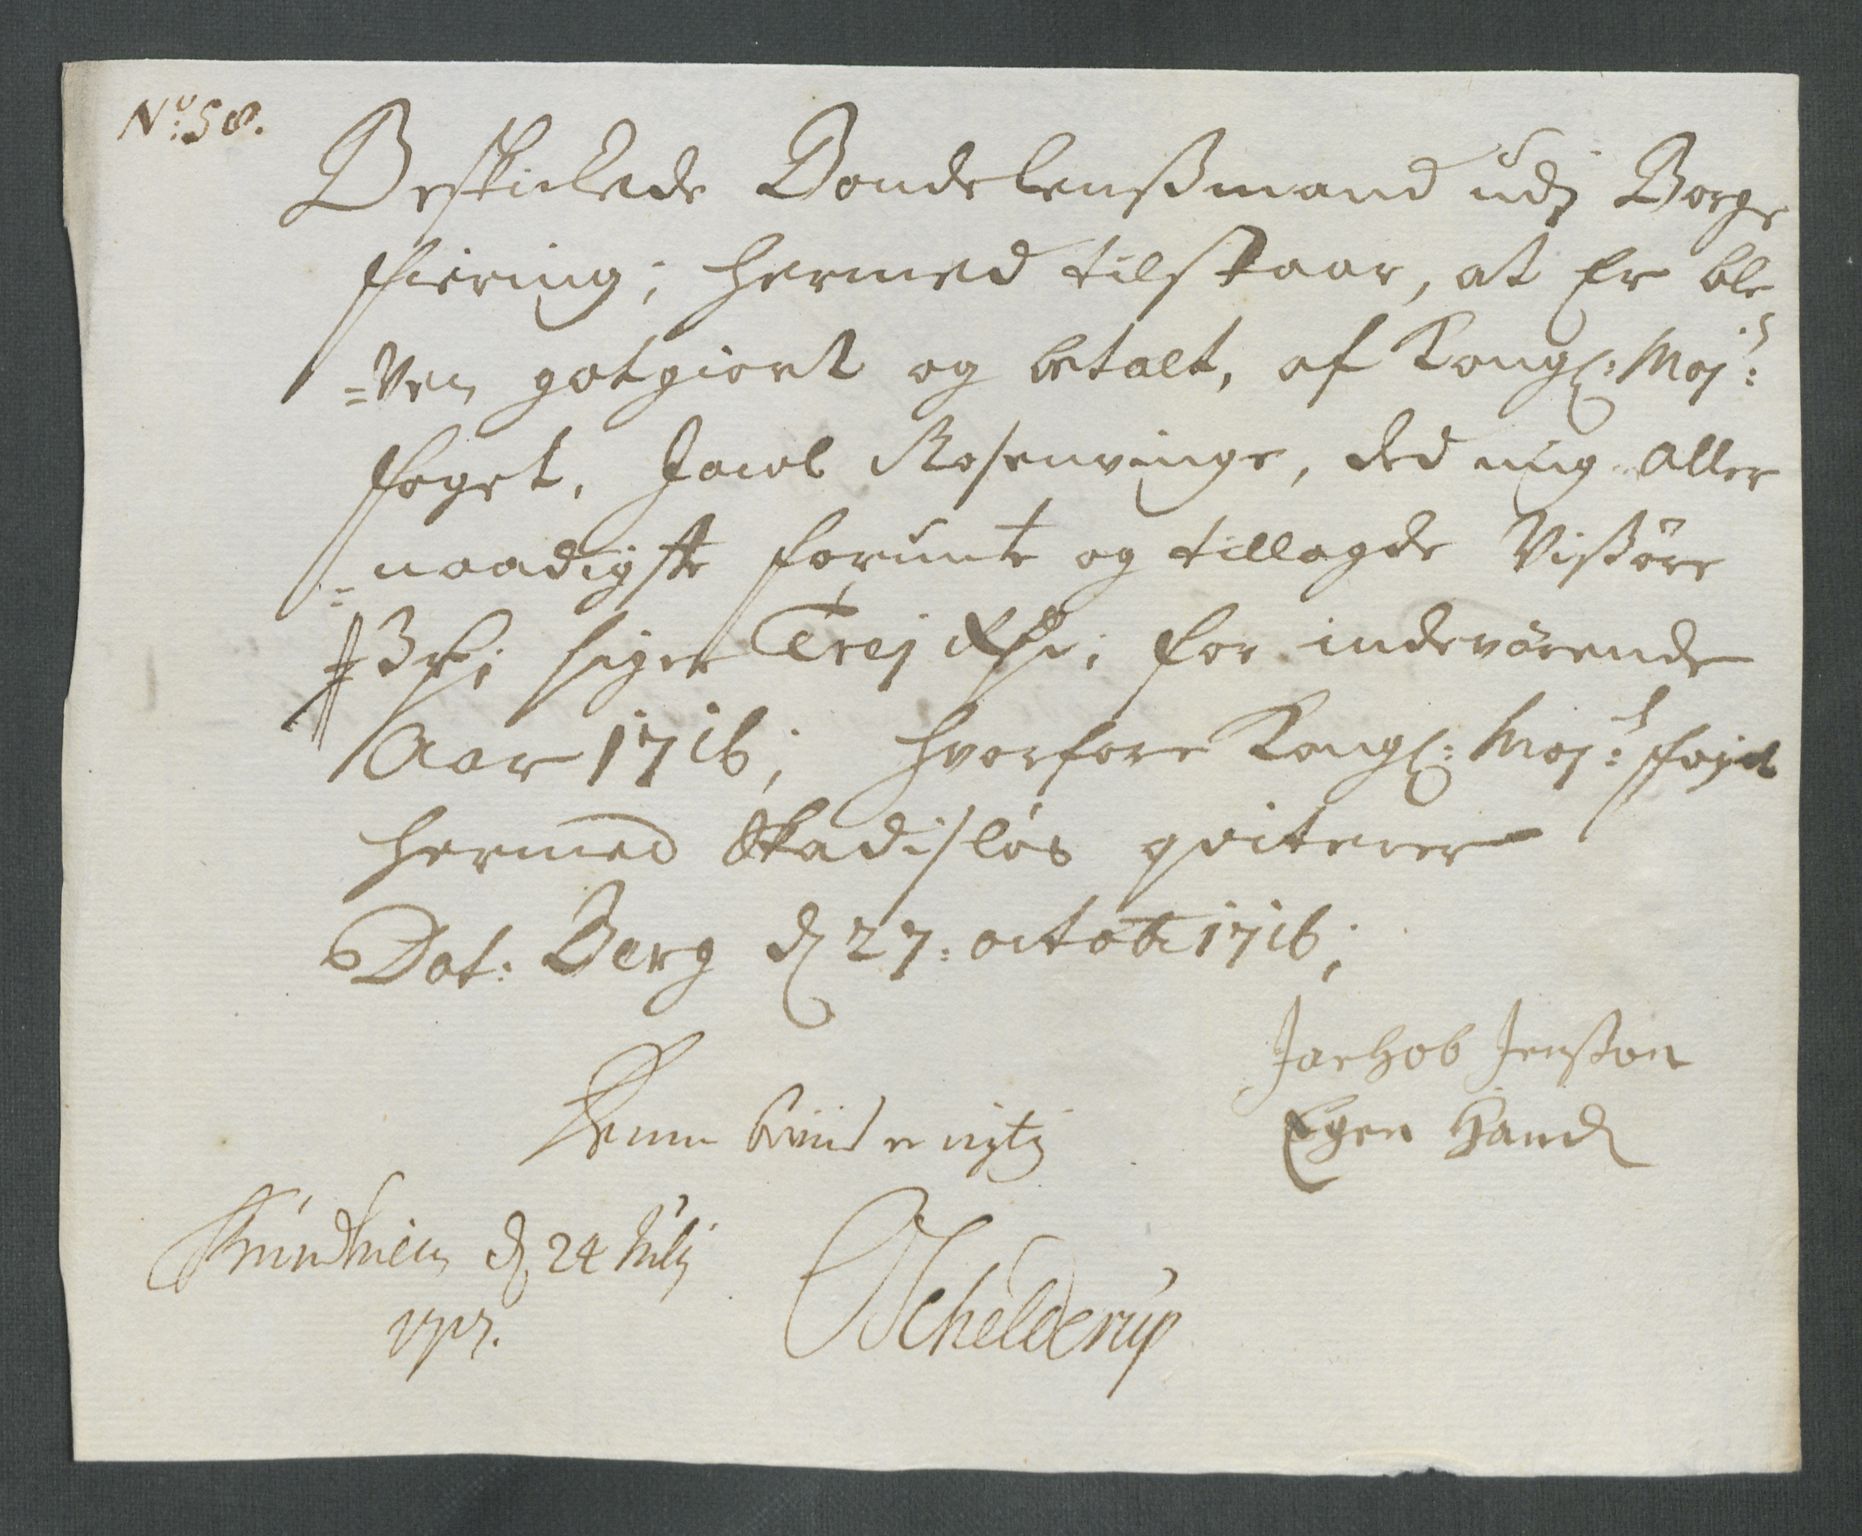 No: 58.
Beskickede Bondelenßmand udj Borge
Fiering; hermed tilstaar, at Er ble
=Ven gotgiort og betalt, af Kongl: Maj:s
Foget, Jacob Rosenvinge, ded mig Aller
=naadigste forunte og tillagde Vißöre
3 siger Trej for indeværende
Aar 1716; hvorfore Kongl: Maj:s Foget
hermed Skadisløs qviterer
Dat: Berg d 27: octob: 1716;
Jachob Jenßon
Egen Hand
Denne er rigtig
Trundhiem d 24 Julij
1717.
OSchelderup